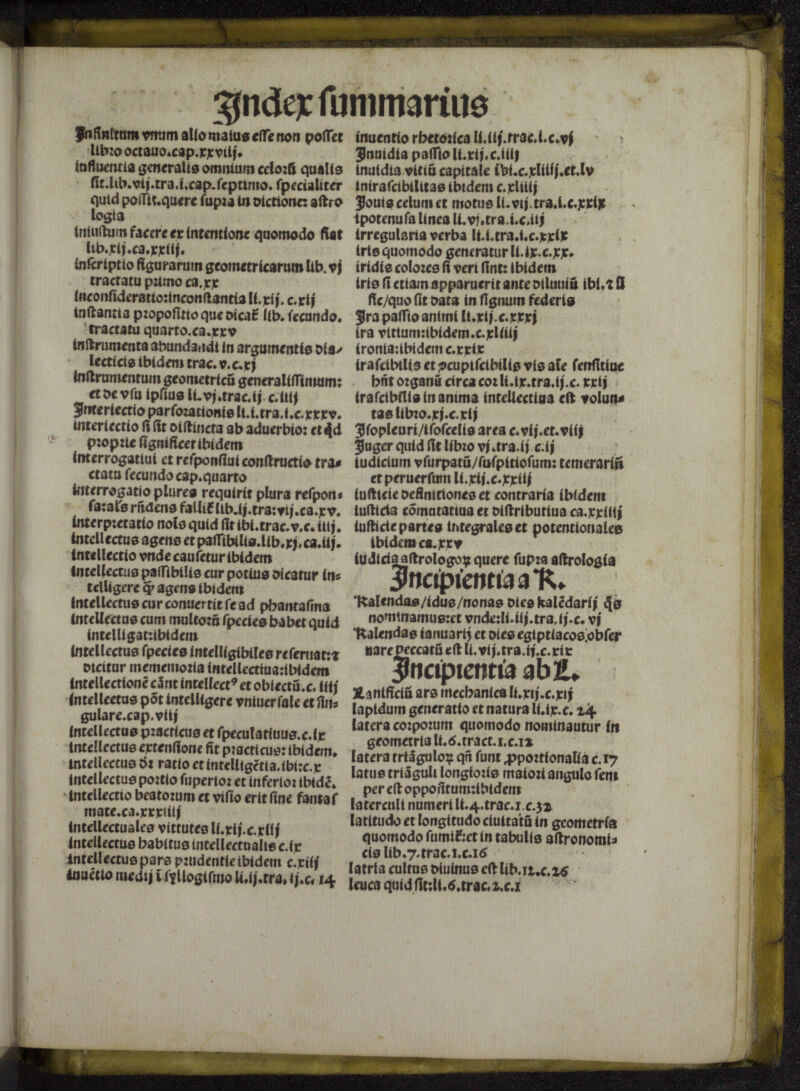 Index summarius
Infinitum vnum alio maius esse non posset
libro octauo.cap.xxviij.
influentia generalis omnium celorũ qualis
fit.lib.vij.tra.i.cap.septimo. specialiter
quid possit.quere supra in dictione: astro
logia
iniustum facere ex intentione quomodo fiat
lib.xij.ca.xxiij.
inscriptio figurarum geometricarum lib.vj
tractatu primo ca.xx
inconsideratio:inconstantia li.xij.c.xij
instantia propositio que dicat̃ lib. secundo.
tractatu quarto.ca.xxv
instrumenta abundandi in argumentis dia-
lecticis ibidem trac.v.c.xj
instrumentum geometricũ generalissimum:
et de vsu ipsius li.vj.trac.ij c.iiij
Interiectio par forationis li.i.tra.i.c.xxxv.
interiectio si sit distincta ab aduerbio: et qd
proprie significet ibidem
interrogatiui et responsiui constructio tra-
ctatu secundo cap.quarto
interrogatio plures requirit plura respon-
sa:als rñdens fallit̃ lib.ij.tra:vij.ca.xv.
interpretatio nois quid sit ibi.trac.v.c.iiij.
intellectus agens et passibilis.lib.xj.ca.iij.
intellectio vnde causetur ibidem
intellectus passibilis cur potius dicatur in-
telligere ꝙ agens ibidem
intellectus cur conuertit se ad phantasma
intellectus cum multorũ species habet quid
intelligat:ibidem
intellectus species intelligibiles referuat:⁊
dicitur mememoria intellectiua:ibidem
intellectionẽ cãnt intellectꝰ et obiectũ.c.iiij
intellectus põt intelligere vniuersale et sin-
gulare.cap.viij
intellectus practicus et speculatiuus.c.ix
intellectus extensione fit practicus: ibidem.
intellectus dr ratio et intelligẽtia.ibi:c.x
intellectus portio superior et inferior ibidẽ.
intellectio beatorum et visio erit sine fantas
mate.ca.xxxiiij
intellectuales virtutes li.xij.c.xiij
intellectus habitus intellectualis c.ix
intellectus pars prudentie ibidem c.xiij
inuẽtio medij ĩ syllogismo li.ij.tra.ij.c.14
inuentio rhetorica li.iij.trac.i.c.vj
Inuidia passio li.xij.c.iiij
inuidia vitiũ capitale ibi.c.xliiij.et.lv
inirascibilitas ibidem c.xliiij
Iouis celum et motus li.vij.tra.i.c.xxix
ipotenusa linea li.vj.tra.i.c.iij
irregularia verba li.i.tra.i.c.xxix
iris quomodo generatur li.ix.c.xx.
iridis colores si veri sint: ibidem
iris si etiam apparuerit ante diluuiũ ibi.⁊ si
sic/quo sit data in signum federis
Ira passio animi li.xij.c.xxxj
ira vitium:ibidem.c.xliiij
ironia:ibidem c.xxix
irascibilis et ꝯcupiscibilis vis aĩe sensitiue
hñt organũ circa cor li.ix.tra.ij.c.xxij
irascibilis in anima intellectiua est volun-
tas libro.xj.c.xij
Isopleuri/isoscelis area c.vij.et.viij
Iuger quid sit libro vj.tra.ij c.ij
iudicium vsurpatũ/suspitiosum: temerariũ
et peruersum li.xij.c.xxiij
iusticie definitiones et contraria ibidem
iusticia cõmutatiua et distributiua ca.xxiiij
iusticie partes integrales et potentionales
ibidem ca.xxv
iudicia astrologoꝝ quere supra astrologia
Incipientia a K.
Kalendas/idus/nonas dies kalẽdarij qs
nominamus:et vnde:li.iij.tra.ij.c.vj
Kalendas ianuarij et dies egiptiacos obser
uare peccatũ est li.vij.tra.ij.c.xix
Incipientia ab L.
Lanificiũ ars mechanica li.xij.c.xij
lapidum generatio et natura li.ix.c.24
latera corporum quomodo nominautur in
geometria li.6.tract.1.c.12
latera triãguloꝝ qñ sunt ꝓportionalia c.17
latus triãguli longioris maiori angulo sem
per est oppositum:ibidem
laterculi numeri li.4.trac.1 c.32
latitudo et longitudo ciuitatũ in geometria
quomodo sumit̃:et in tabulis astronomi-
cis lib.7.trac.1.c.16
latria cultus diuinus est lib.12.c.26
leuca quid sit:li.6.trac.2.c.1